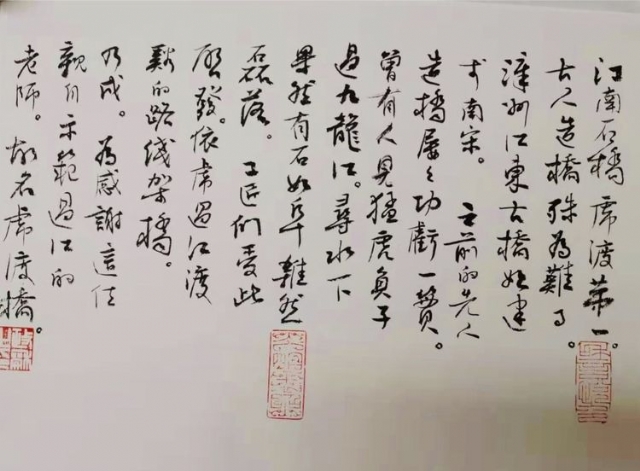 江南石橋虎渡第一。
古人造橋殊為難事。
漳州江東古橋始建
于南宋。之前的先人
造橋屢々功虧一簣。
曾有人見猛虎負子
過九龍江。尋水下
果然有石如阜 然
磊落。工匠們受此
啓發。依虎過江渡
谿的路线架橋。
乃成。為感謝這位
親自示範過江的
老師。故名虎渡橋。